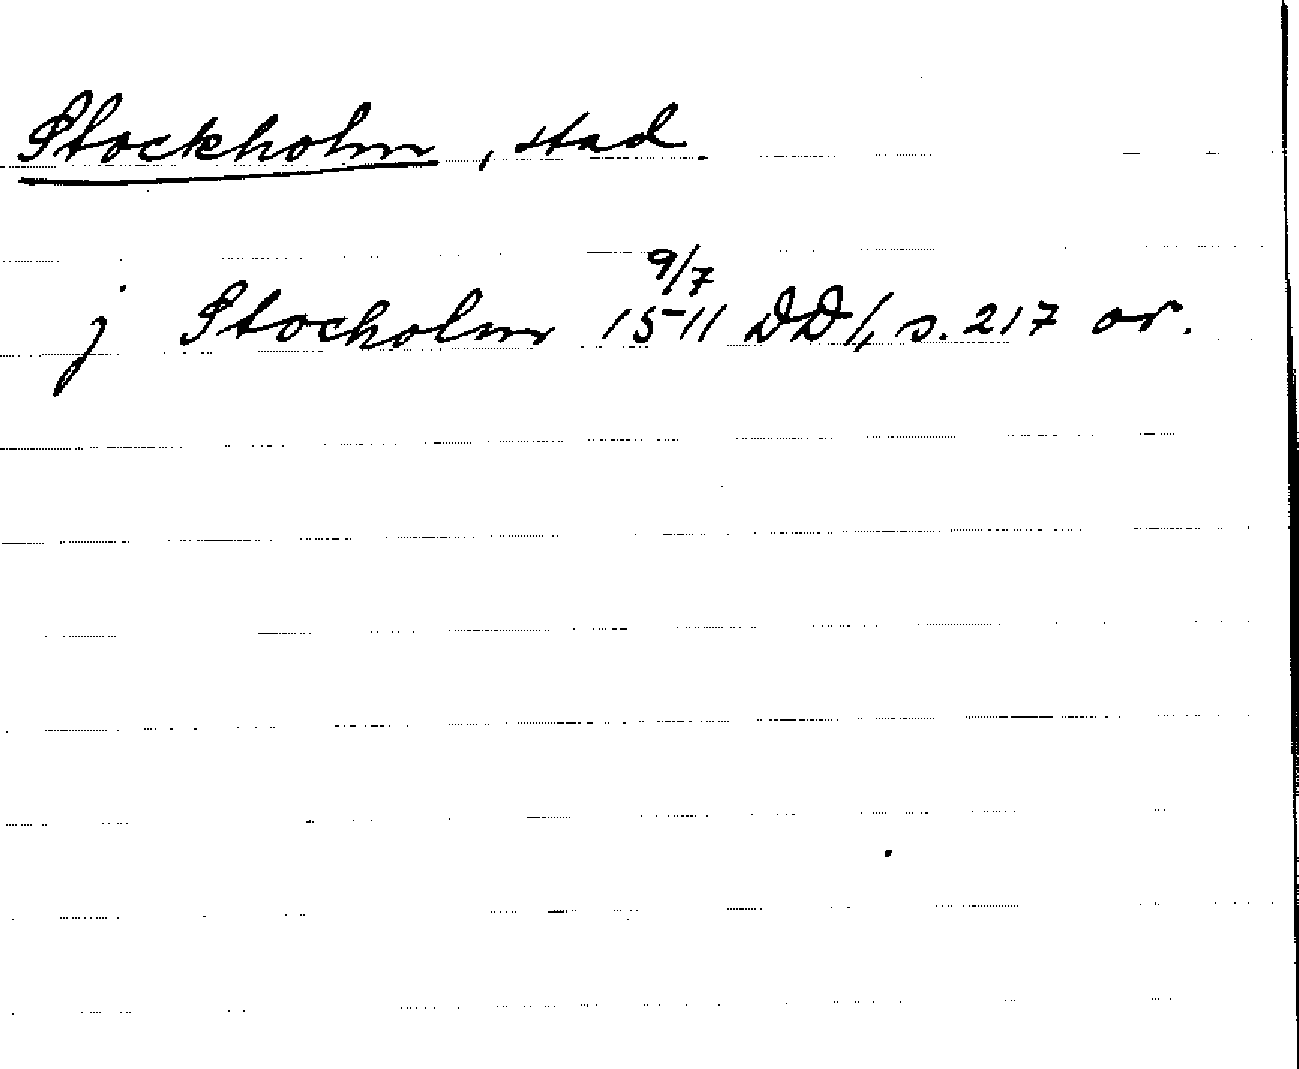 Stockholm, stad.
j Stocholm 9/7 1511 DD 1, s. 217 or.